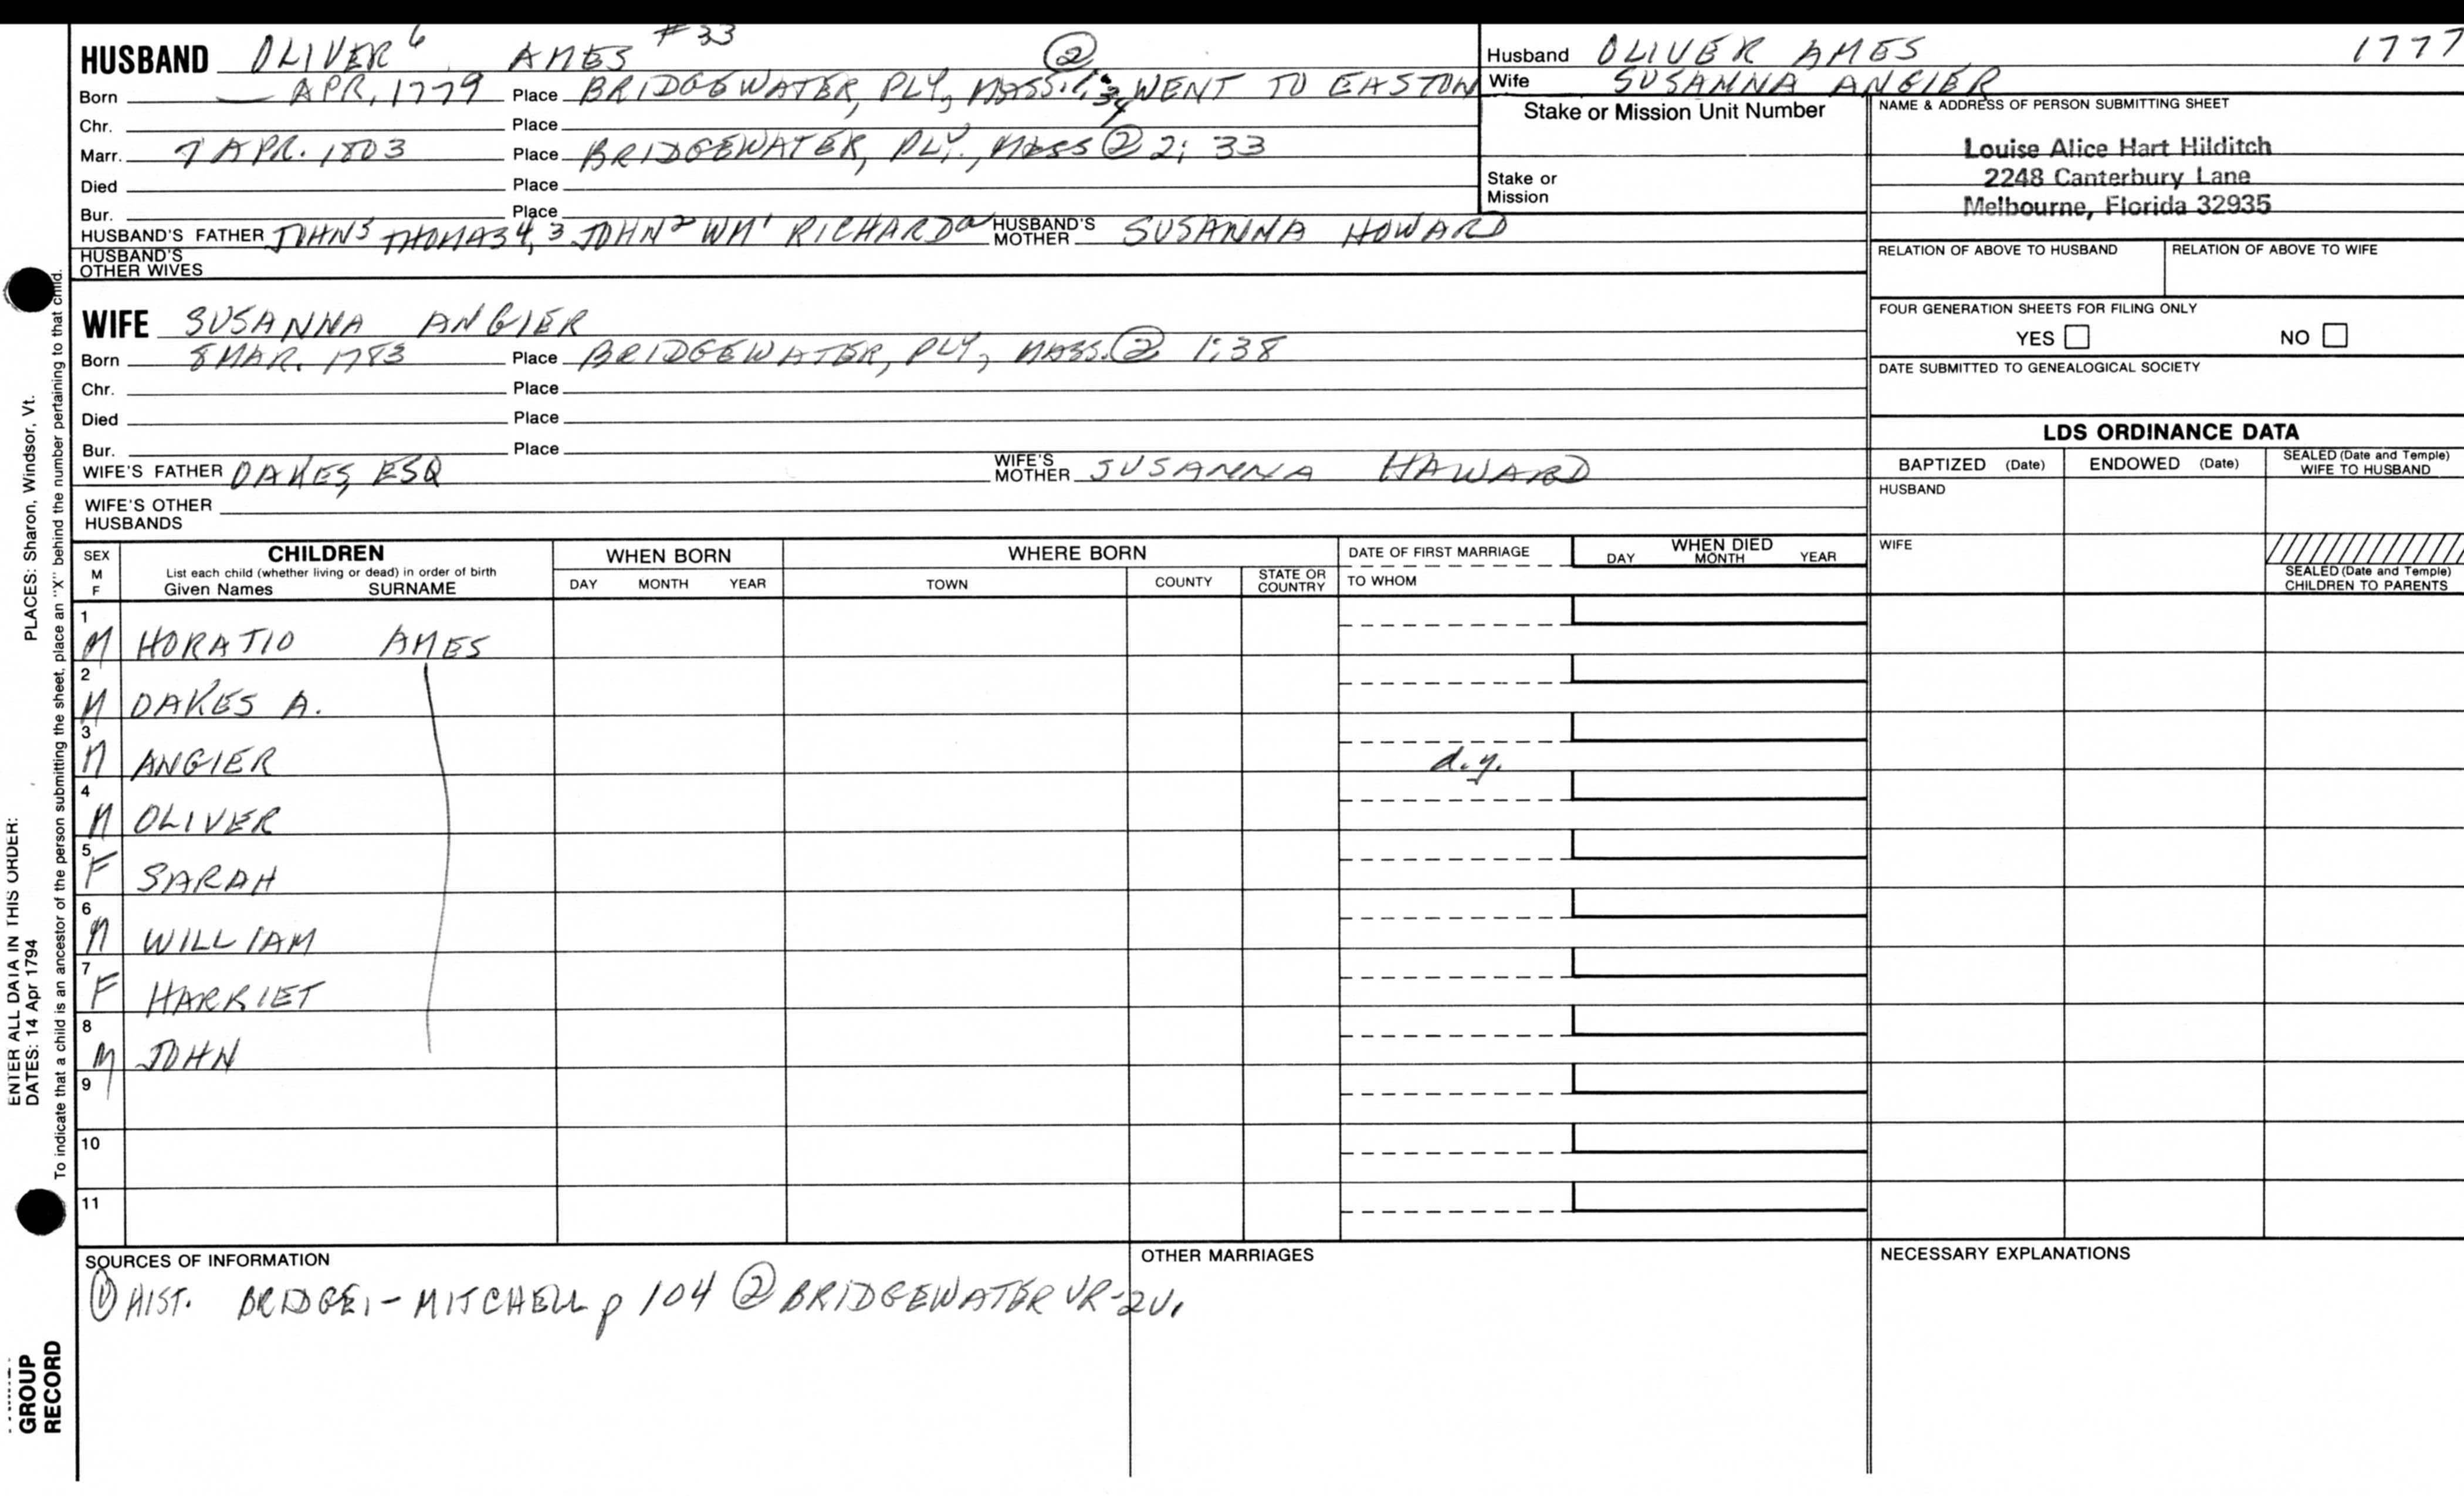 HUSBAND OLIVER 6 AMES #33 ②
Born APR, 1779 Place BRIDGEWATER, PLY, MASS. 1; 34 WENT TO EASTON
Chr. Place
Marr. 7 APR. 1803 Place BRIDGEWATER, PLY., MASS ② 2; 33
Died Place
Bur. Place
HUSBAND'S FATHER JOHN5 THOMAS4, 3 JOHN2 WM1 RICHARDa HUSBAND'S MOTHER SUSANNA HOWARD
HUSBAND'S OTHER WIVES
Husband OLIVER AMES 1777
Wife SUSANNA ANGIER
Stake or Mission Unit Number
Stake or Mission
NAME & ADDRESS OF PERSON SUBMITTING SHEET
Louise Alice Hart Hilditch
2248 Canterbury Lane
Melbourne, Florida 32935
RELATION OF ABOVE TO HUSBAND RELATION OF ABOVE TO WIFE
FOUR GENERATION SHEETS FOR FILING ONLY
YES NO
DATE SUBMITTED TO GENEALOGICAL SOCIETY
WIFE SUSANNA ANGIER
Born 8 MAR. 1783 Place BRIDGEWATER, PLY, MASS. ② 1:38
Chr. Place
Died Place
Bur. Place
WIFE'S FATHER OAKES, ESQ WIFE'S MOTHER SUSANNA HAWARD
WIFE'S OTHER HUSBANDS
LDS ORDINANCE DATA
BAPTIZED (Date) ENDOWED (Date) SEALED (Date and Temple) WIFE TO HUSBAND
HUSBAND
WIFE
SEALED (Date and Temple) CHILDREN TO PARENTS
SEX M F
CHILDREN
List each child (whether living or dead) in order of birth
Given Names SURNAME
WHEN BORN
DAY MONTH YEAR
WHERE BORN
TOWN COUNTY STATE OR COUNTRY
DATE OF FIRST MARRIAGE
TO WHOM
WHEN DIED
DAY MONTH YEAR
1 M HORATIO AMES
2 M OAKES A.
3 M ANGIER d.y.
4 M OLIVER
5 F SARAH
6 M WILLIAM
7 F HARRIET
8 M JOHN
9
10
11
SOURCES OF INFORMATION
① HIST. BRIDGE, - MITCHELL p 104 ② BRIDGEWATER VR-2V.
OTHER MARRIAGES
NECESSARY EXPLANATIONS
PLACES: Sharon, Windsor, Vt.
To indicate that a child is an ancestor of the person submitting the sheet, place an "X" behind the number pertaining to that child.
ENTER ALL DATA IN THIS ORDER:
DATES: 14 Apr 1794
GROUP
RECORD